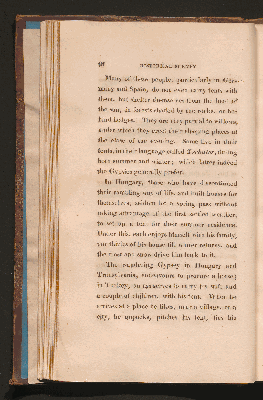 48 HISTORICAL SURVEY
Many of these people, particularly in Ger-
many and Spain, do not even carry tents with
them, but shelter themselves from the heat of
the sun, in forests shaded by the rocks, or be-
hind hedges. They are very partial to willows,
under which they erect their sleeping places at
the close of the evening. Some live in their
tents, in their language called Tschater, during
both summer and winter; which latter indeed
the Gypsies generally prefer.
In Hungary, those who have discontinued
their rambling way of life, and built houses for
themselves, seldom let a spring pass without
taking advantage of the first settled weather,
to set up a tent for their summer residence.
Under this, each enjoys himself with his family,
nor thinks of his house till winter returns, and
the frost and snow drive him back to it.
The wandering Gypsey in Hungary and
Transylvania, endeavours to procure a horse;
in Turkey, an ass serves to carry his wife, and
a couple of children, with his tent. When he
arrives at a place he likes, near a village, or a
city, he unpacks, pitches his tent, ties his